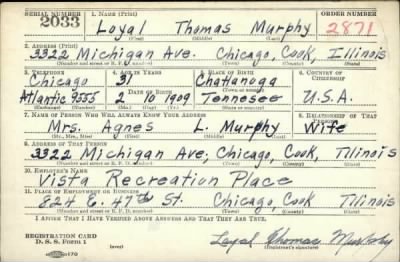 SERIAL NUMBER 1. NAME (Print) ORDER NUMBER
2033 Loyal Thomas Murphy 2871
(First) (Middle) (Last)
2. ADDRESS (Print)
3322 Michigan Ave. Chicago, Cook, Illinois
(Number and street or R. F. D. number) (Town) (County) (State)
3. TELEPHONE 4. AGE IN YEARS 5. PLACE OF BIRTH 6. COUNTRY OF CITIZENSHIP
Chicago 31 Chattanoga
(Exchange) DATE OF BIRTH (Town or county)
Atlantic 9555 2 10 1909 Tennesee U.S.A.
(Number) (Mo.) (Day) (Yr.) (State or country)
7. NAME OF PERSON WHO WILL ALWAYS KNOW YOUR ADDRESS 8. RELATIONSHIP OF THAT PERSON
Mrs. Agnes L. Murphy Wife
(Mr., Mrs., Miss) (First) (Middle) (Last)
9. ADDRESS OF THAT PERSON
3322 Michigan Ave., Chicago, Cook, Illinois
(Number and street or R. F. D. number) (Town) (County) (State)
10. EMPLOYER'S NAME
Vista Recreation Place
11. PLACE OF EMPLOYMENT OR BUSINESS
824 E. 47th St. Chicago, Cook Illinois
(Number and street or R. F. D. number) (Town) (County) (State)
I AFFIRM THAT I HAVE VERIFIED ABOVE ANSWERS AND THAT THEY ARE TRUE.
REGISTRATION CARD
D. S. S. FORM 1 (over) Loyal Thomas Murphy
(Registrant's signature)